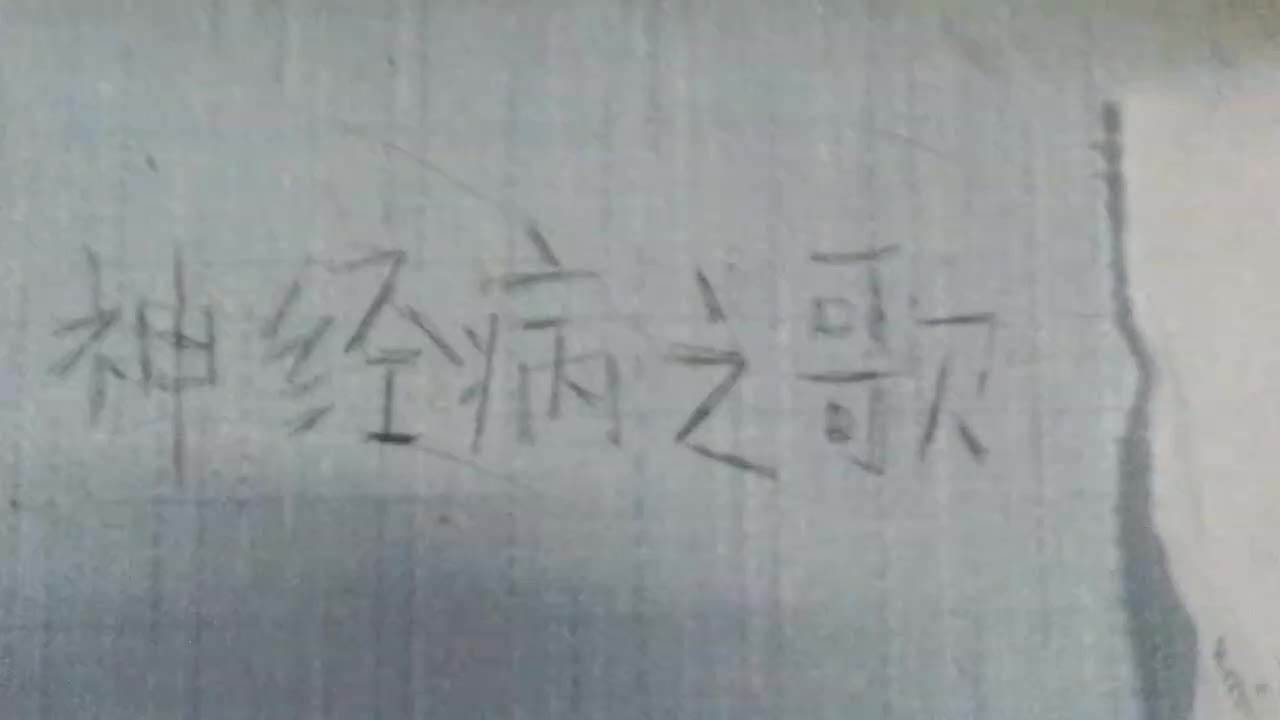 神经病之歌